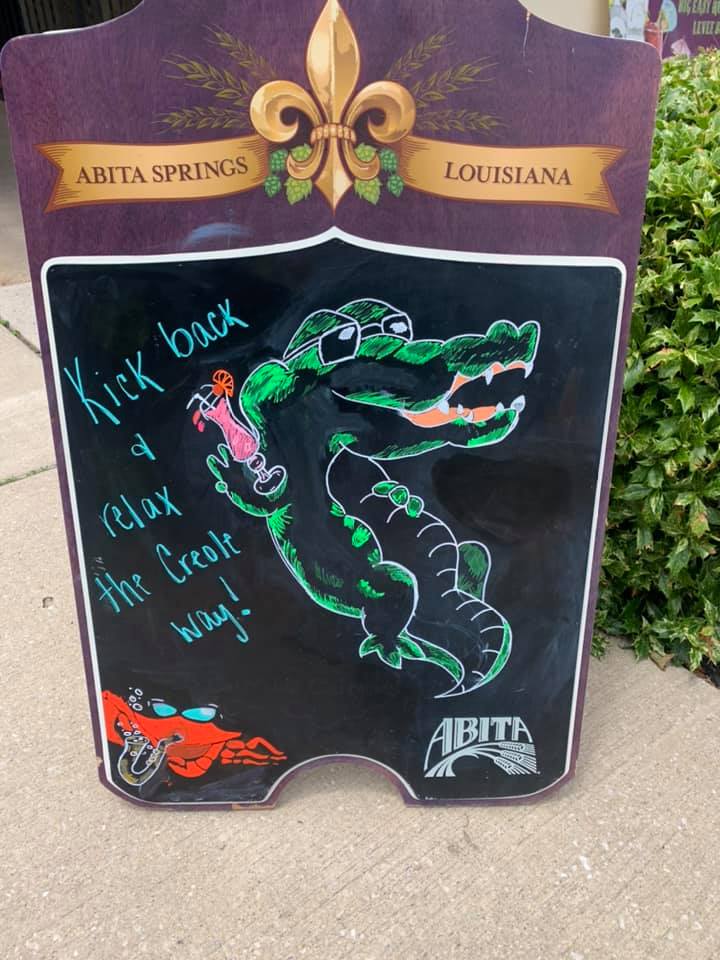 ABITA SPRINGS LOUISIANA
Kick back
&
relax
the Creole
way!
ABITA